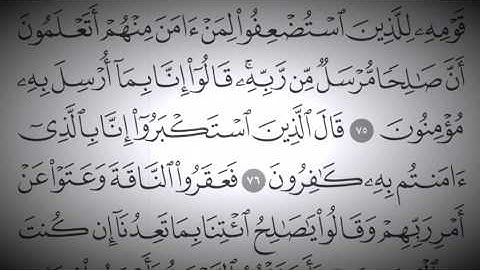 قَوْمِهِۦ لِلَّذِينَ ٱسْتُضْعِفُوا۟ لِمَنْ ءَامَنَ مِنْهُمْ أَتَعْلَمُونَ
أَنَّ صَٰلِحًا مُّرْسَلٌ مِّن رَّبِّهِۦ ۚ قَالُوٓا۟ إِنَّا بِمَآ أُرْسِلَ بِهِۦ
مُؤْمِنُونَ ٧٥ قَالَ ٱلَّذِينَ ٱسْتَكْبَرُوٓا۟ إِنَّا بِٱلَّذِىٓ
ءَامَنتُم بِهِۦ كَٰفِرُونَ ٧٦ فَعَقَرُوا۟ ٱلنَّاقَةَ وَعَتَوْا۟ عَنْ
أَمْرِ رَبِّهِمْ وَقَالُوا۟ يَٰصَٰلِحُ ٱئْتِنَا بِمَا تَعِدُنَآ إِن كُنتَ